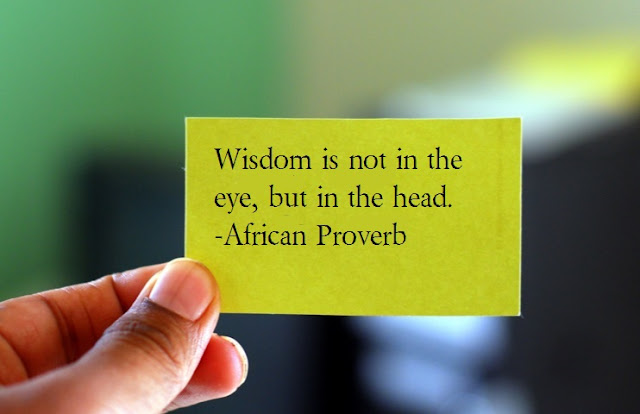 Wisdom is not in the
eye, but in the head.
-African Proverb